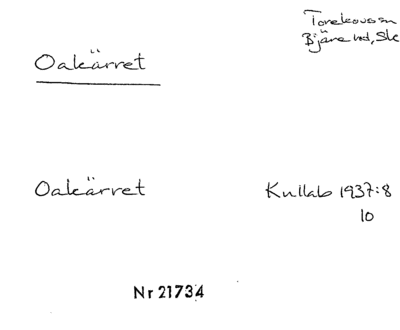 Torekovs sn
Bjäre hd, Sk
Oakärret
Oakärret
Kullab 1937:8
10
Nr 21734